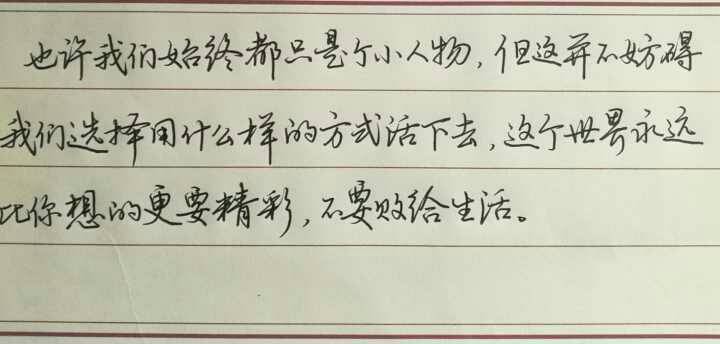 也许我们始终都只是个小人物，但这并不妨碍
我们选择用什么样的方式活下去，这个世界永远
比你想的更要精彩，不要败给生活。